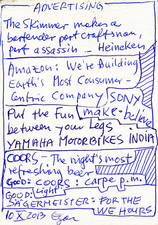 ADVERTISING
The Skimmer makes a
bartender part craftsman,
part assassin – Heineken
Amazon: We're Building
Earth's Most Consumer-
Centric Company
SONY
make.believe
Put the fun
between your legs
YAMAHA MOTORBIKES INDIA
COORS – The night's most
refreshing beer
Good: coors: carpe p.m.
GOOD: Light
JÄGERMEISTER: FOR THE
WEE HOURS
10 X 2013